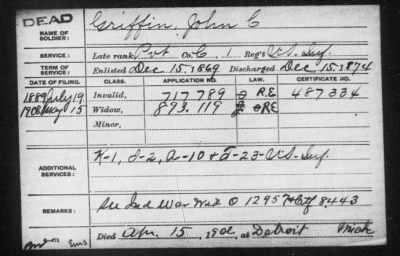 DEAD
NAME OF SOLDIER:
Griffin, John C
SERVICE:
Late rank Pvt Co. G, 1 Reg't U.S. Inf.
TERM OF SERVICE:
Enlisted Dec 15, 1869 Discharged Dec 15, 1874
DATE OF FILING. CLASS. APPLICATION NO. LAW. CERTIFICATE NO.
1889 July 19 Invalid, 717 789 RE 487334
1902 May 15 Widow, 893.119 RE
Minor,
ADDITIONAL SERVICES:
K-1, I-2, A-10 & I-23-U.S. Inf.
REMARKS:
See Ind War Wid O 12957 Ctf 8443
Died Apr. 15, 1902, at Detroit Mich